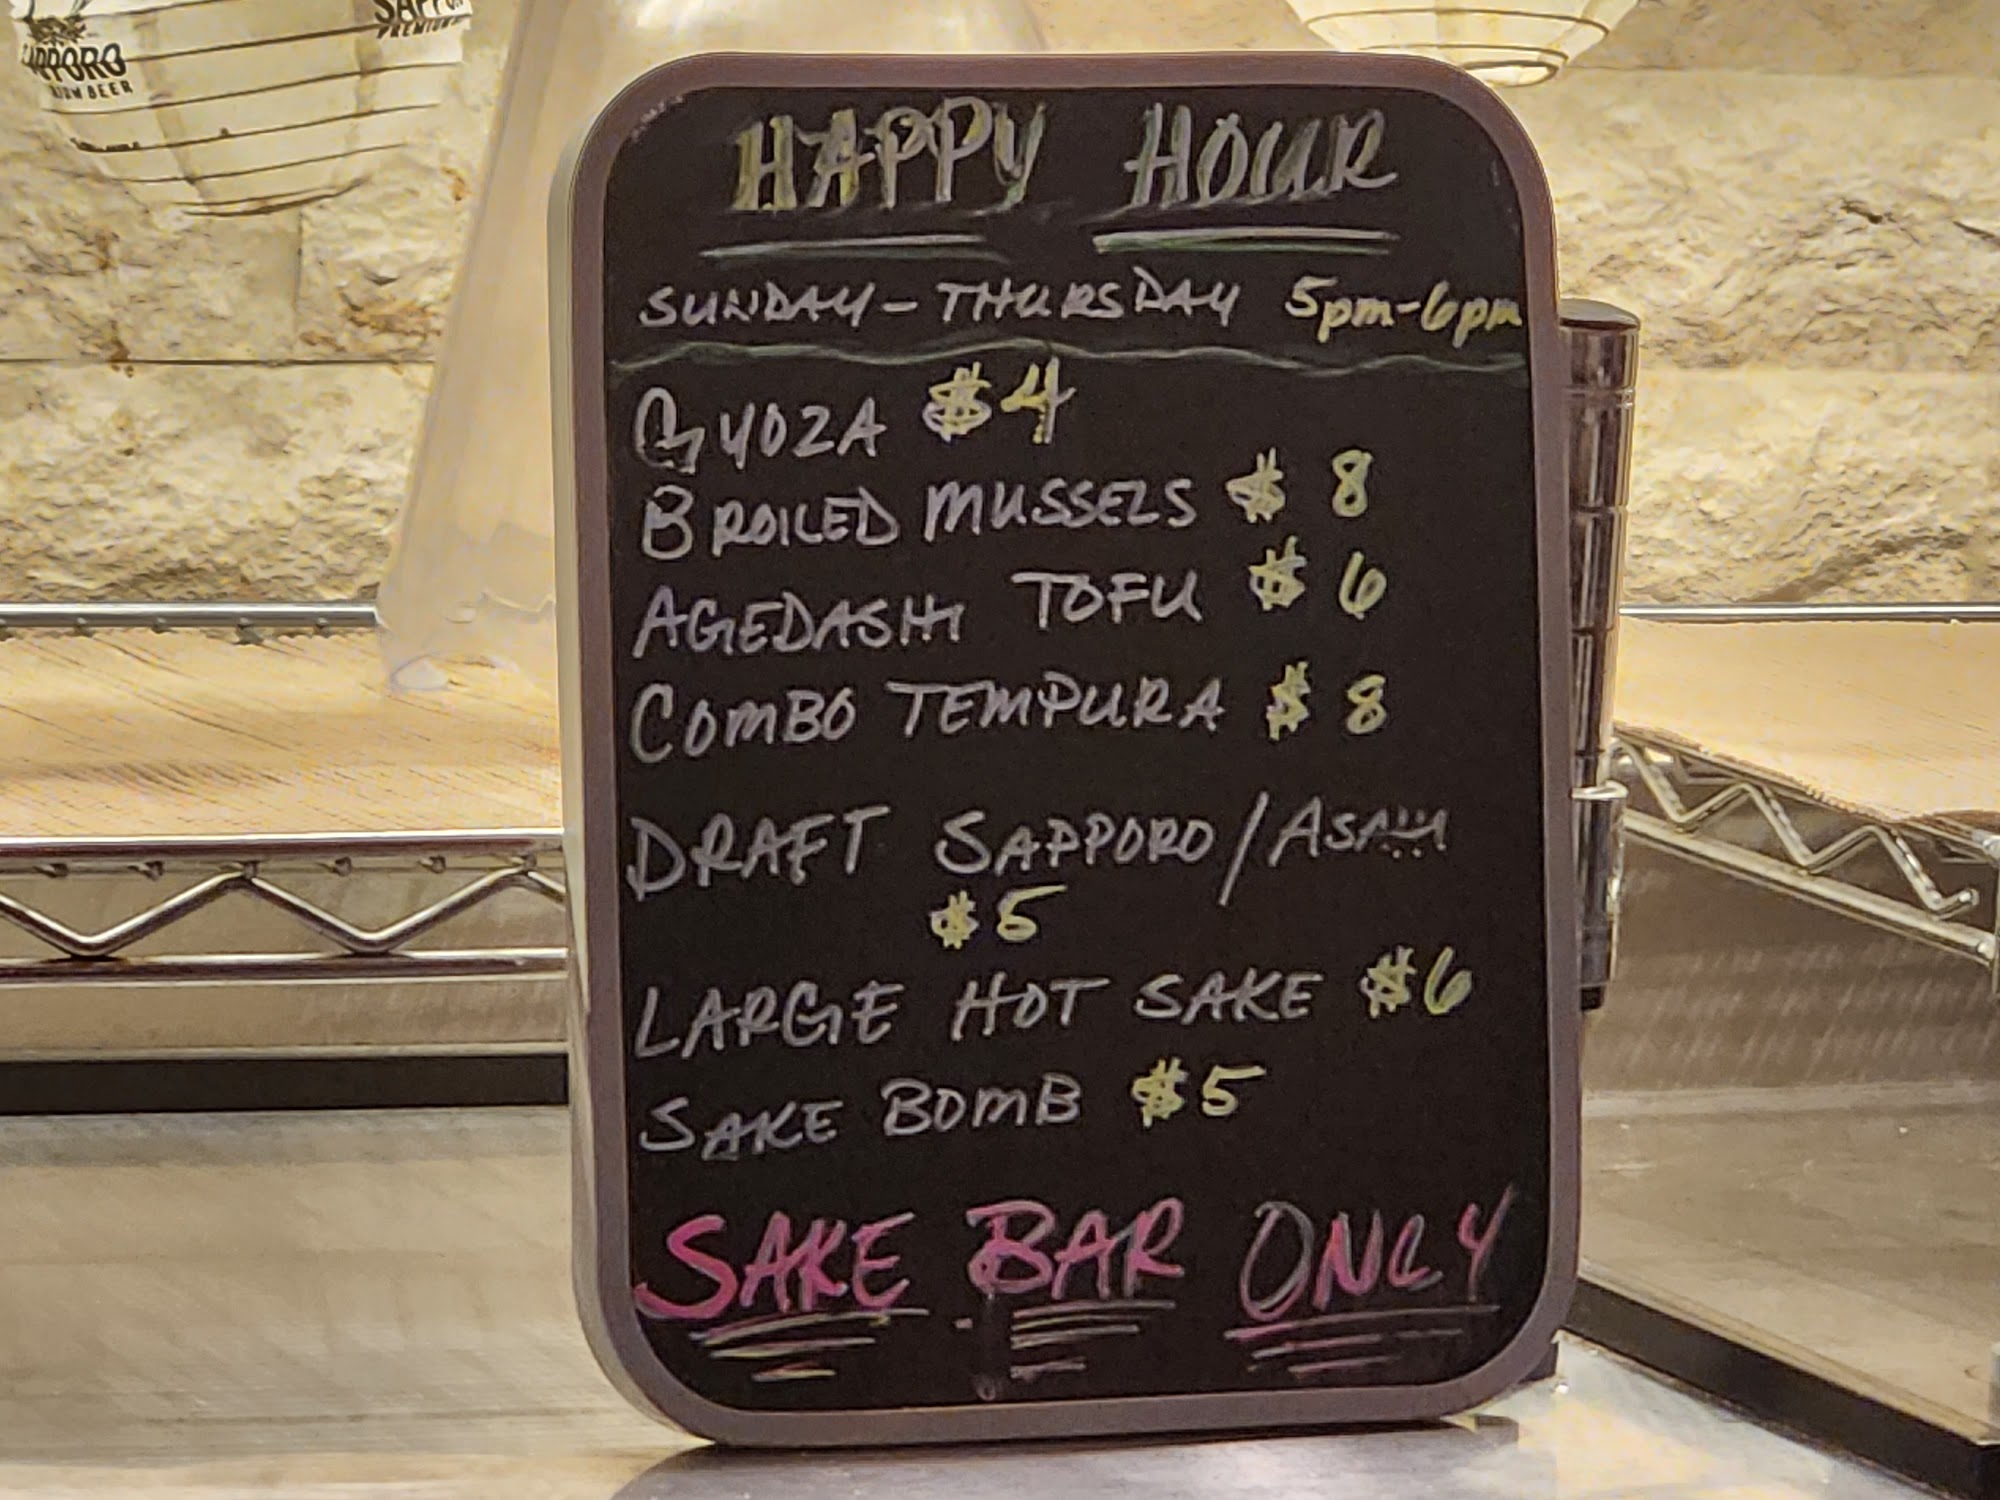 SAPPORO
PREMIUM
SAPPORO
BEER
HAPPY HOUR
SUNDAY - THURSDAY 5pm-6pm
GYOZA $4
BROILED MUSSELS $8
AGEDASHI TOFU $6
COMBO TEMPURA $8
DRAFT SAPPORO/ASAHI
$5
LARGE HOT SAKE $6
SAKE BOMB $5
SAKE BAR ONLY